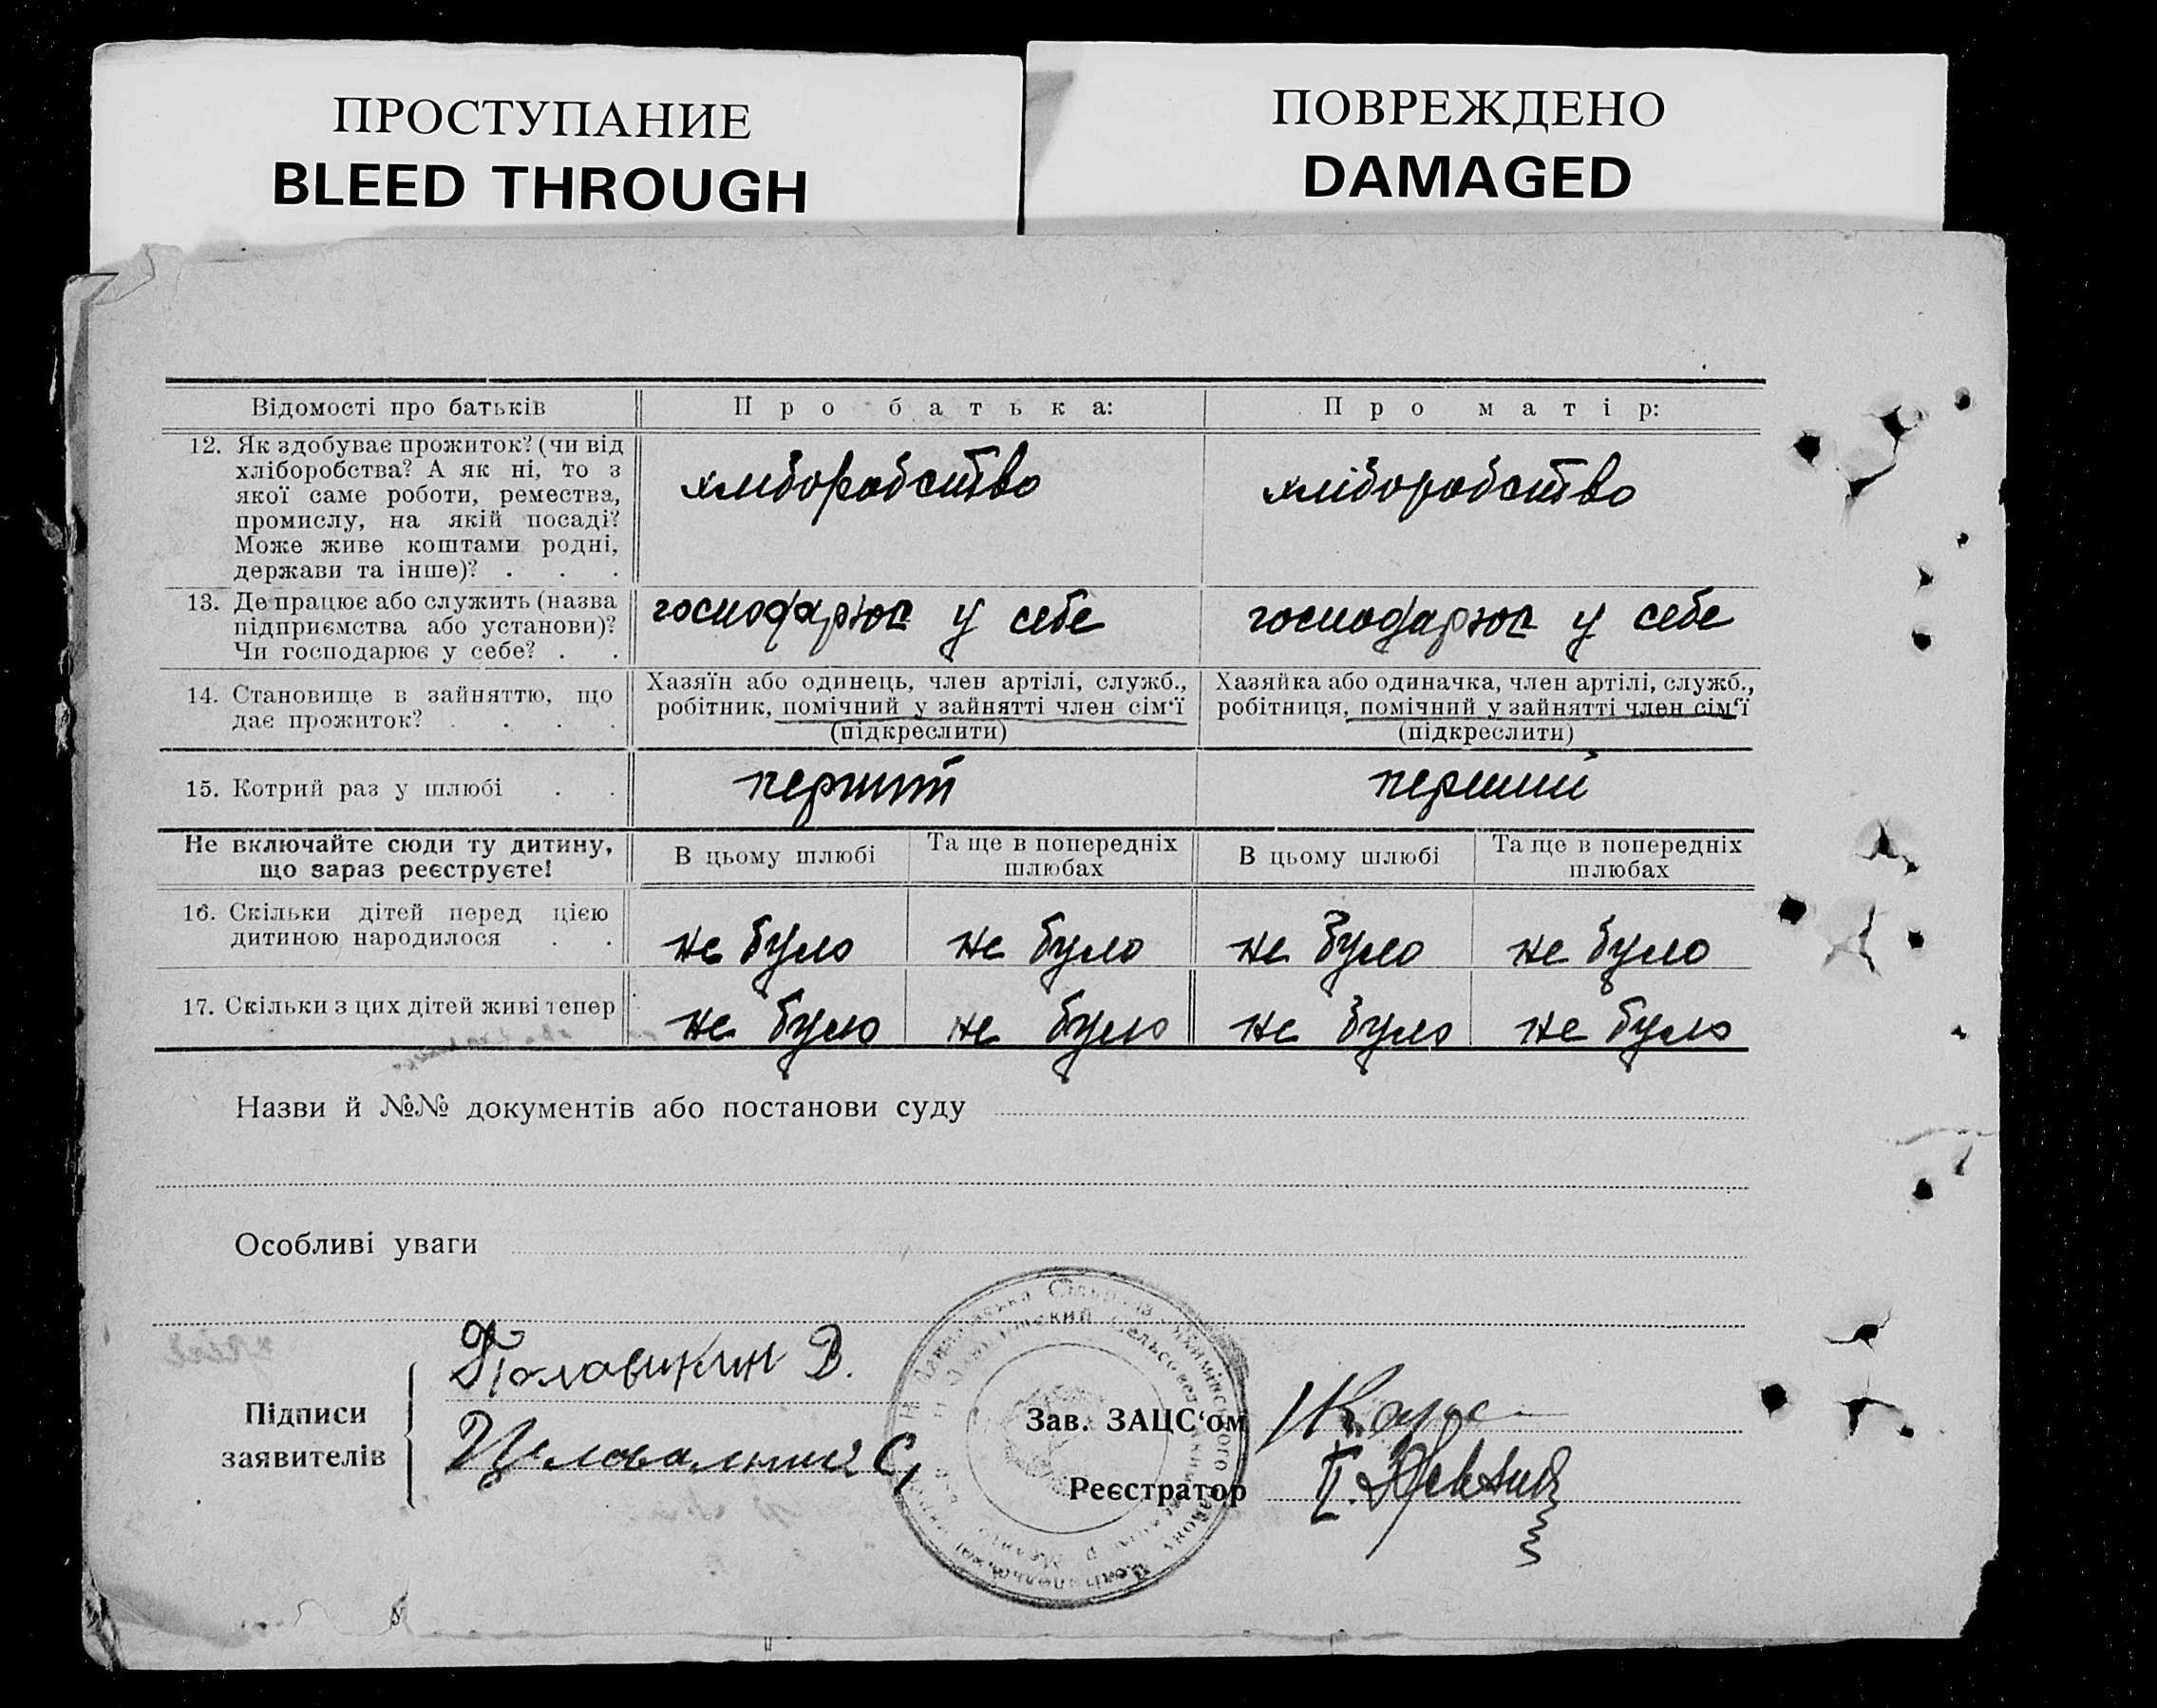 ПРОСТУПАНИЕ
BLEED THROUGH
ПОВРЕЖДЕНО
DAMAGED
Відомості про батьків
Про батька:
Про матір:
12. Як здобуває прожиток? (чи від
хліборобства? А як ні, то з
якої саме роботи, ремества,
промислу, на якій посаді?
Може живе коштами родні,
держави та інше)? . . .
хліборобство
хліборобство
13. Де працює або служить (назва
підприємства або установи)?
Чи господарює у себе? . .
господарює у себе
господарює у себе
14. Становище в зайняттю, що
дає прожиток? . . . .
Хазяїн або одинець, член артілі, служб.,
робітник, помічний у зайнятті член сім‘ї
(підкреслити)
Хазяйка або одиначка, член артілі, служб.,
робітниця, помічний у зайнятті член сім‘ї
(підкреслити)
15. Котрий раз у шлюбі . .
перший
перший
Не включайте сюди ту дитину,
що зараз реєструєте!
В цьому шлюбі
Та ще в попередніх
шлюбах
В цьому шлюбі
Та ще в попередніх
шлюбах
16. Скільки дітей перед цією
дитиною народилося . .
не було
не було
не було
не було
17. Скільки з цих дітей живі тепер
не було
не було
не було
не було
Назви й №№ документів або постанови суду
Особливі уваги
Підписи
заявителів
В.
С,
Зав. ЗАЦС‘ом
Реєстратор